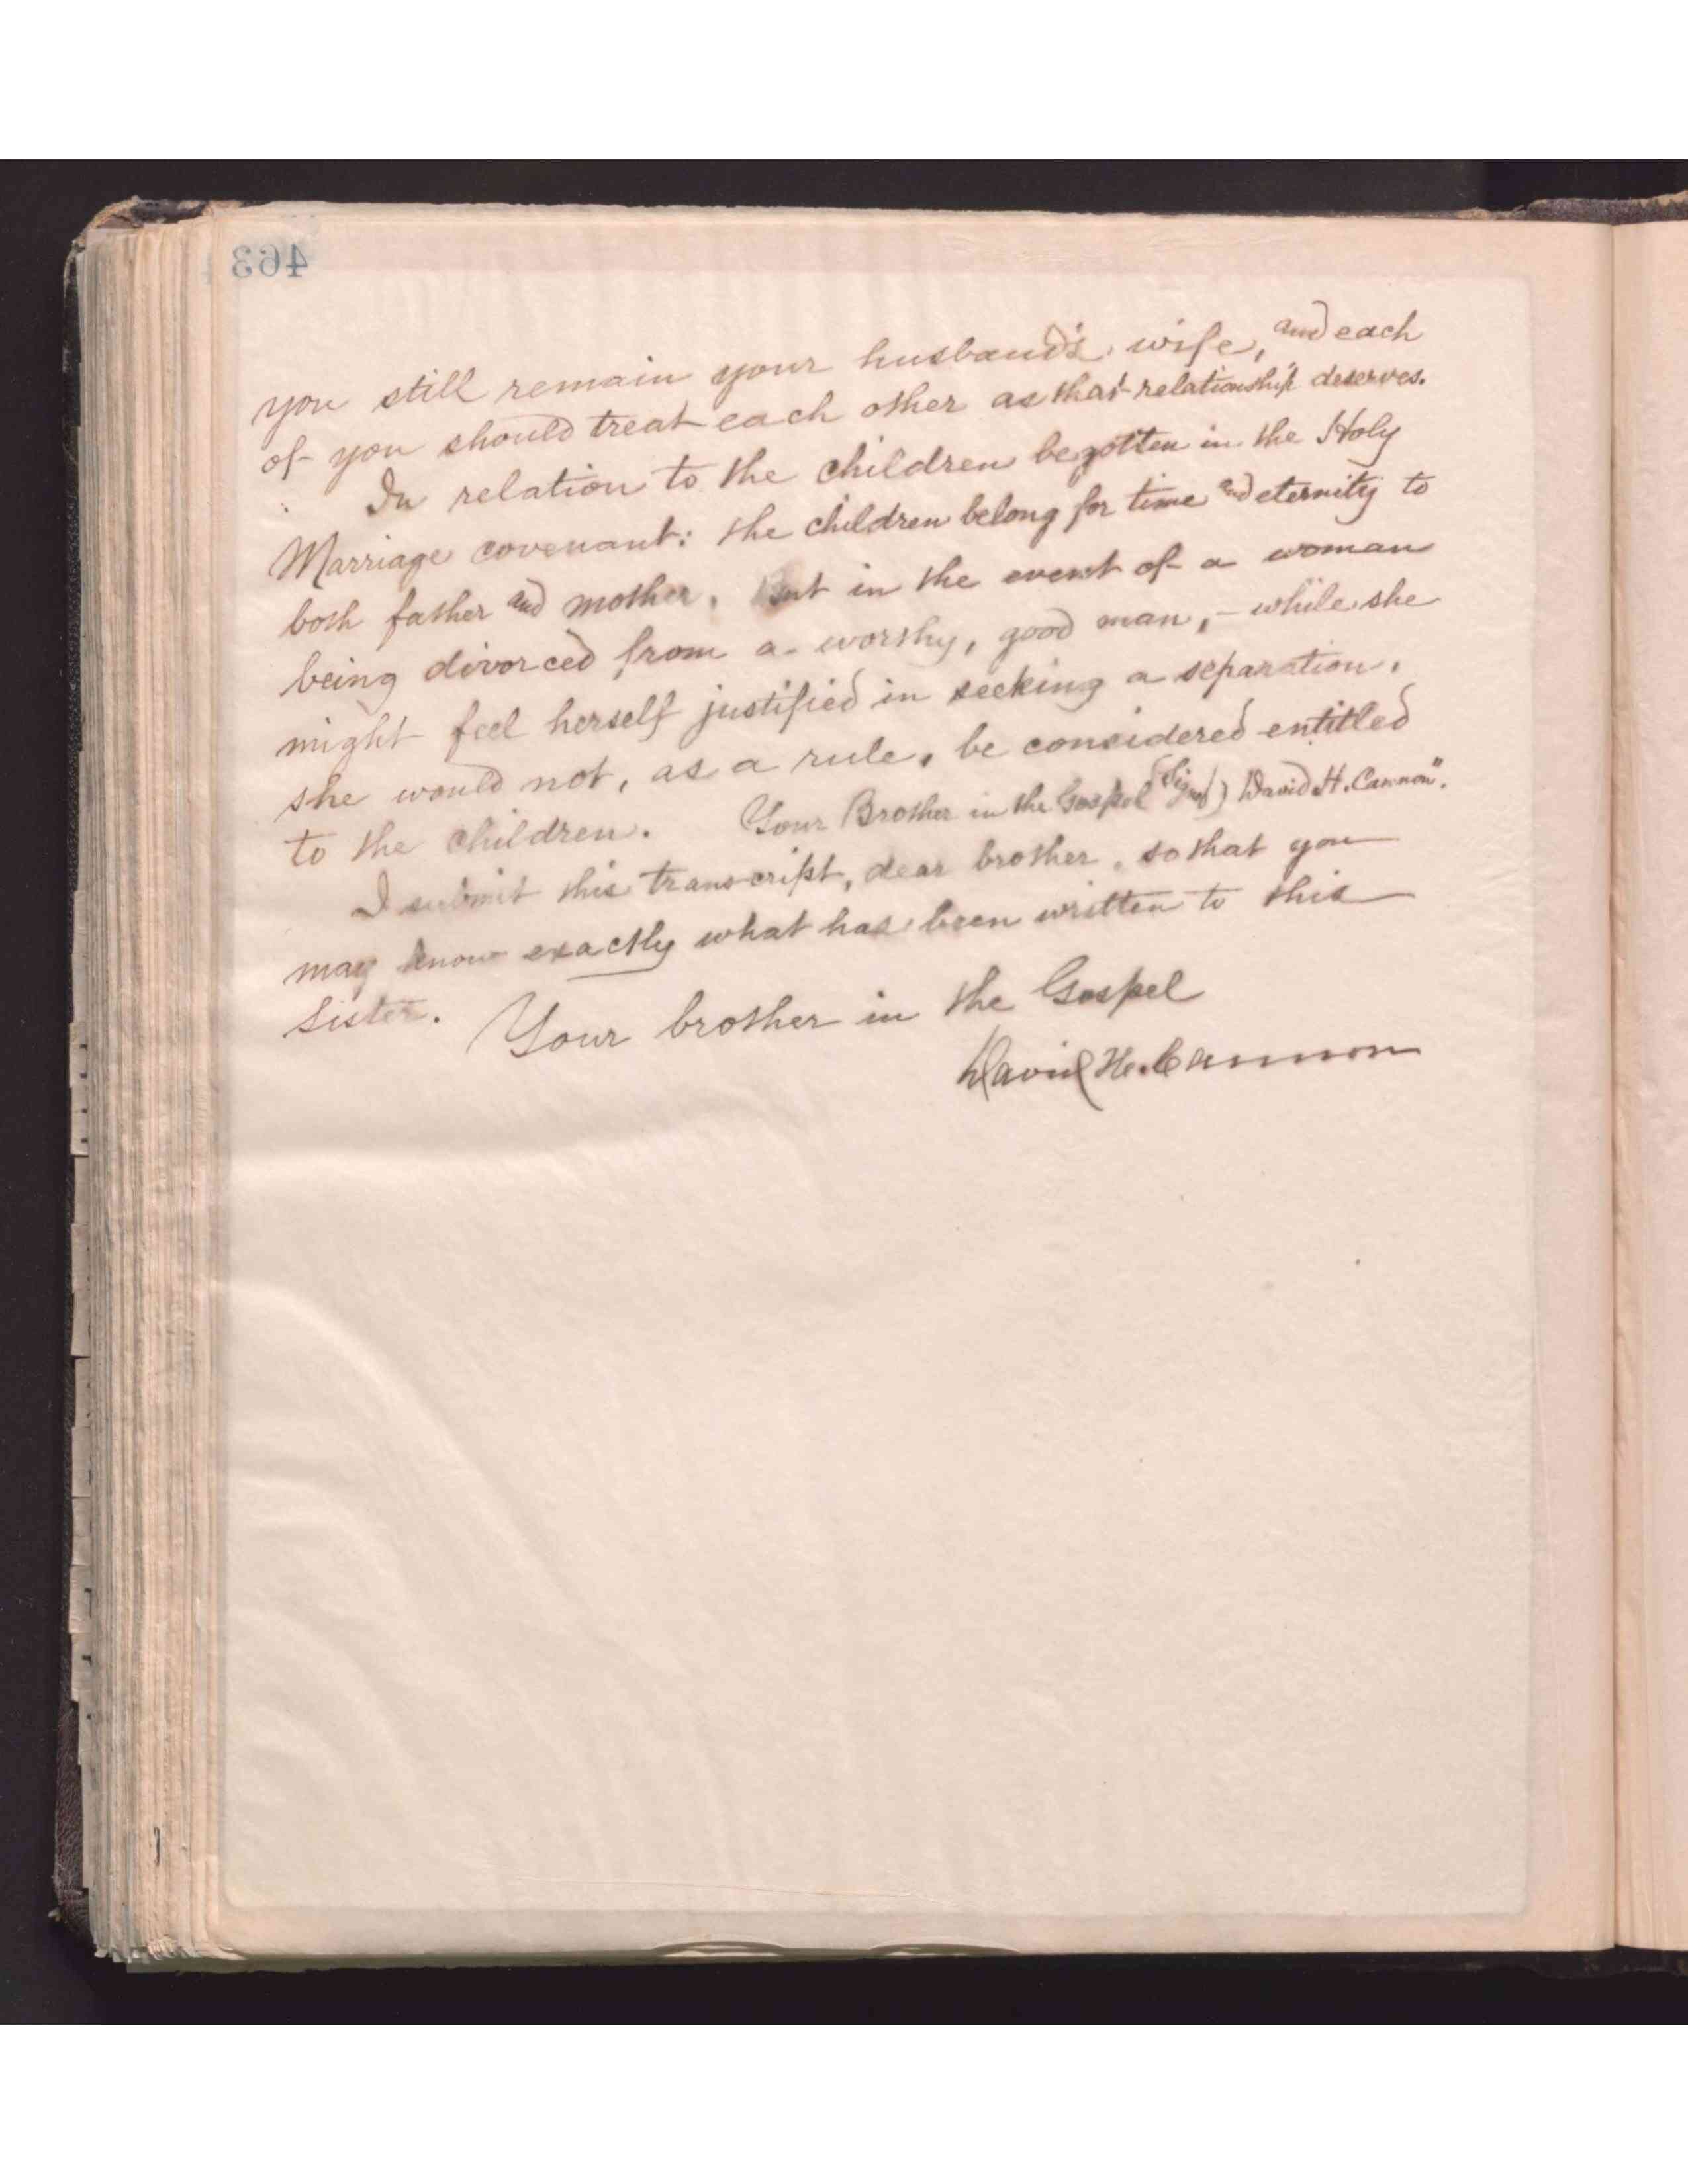 463
you still remain your husband's wife, and each
of you should treat each other as that relationship deserves.
In relation to the children begotten in the Holy
Marriage covenant: the children belong for time and eternity to
both father and mother. But in the event of a woman
being divorced from a worthy, good man, - while she
might feel herself justified in seeking a separation,
she would not, as a rule, be considered entitled
to the children. Your Brother in the Gospel (Signed) David H. Cannon".
I submit this transcript, dear brother, so that you
may know exactly what has been written to this
sister. Your brother in the Gospel
David H. Cannon